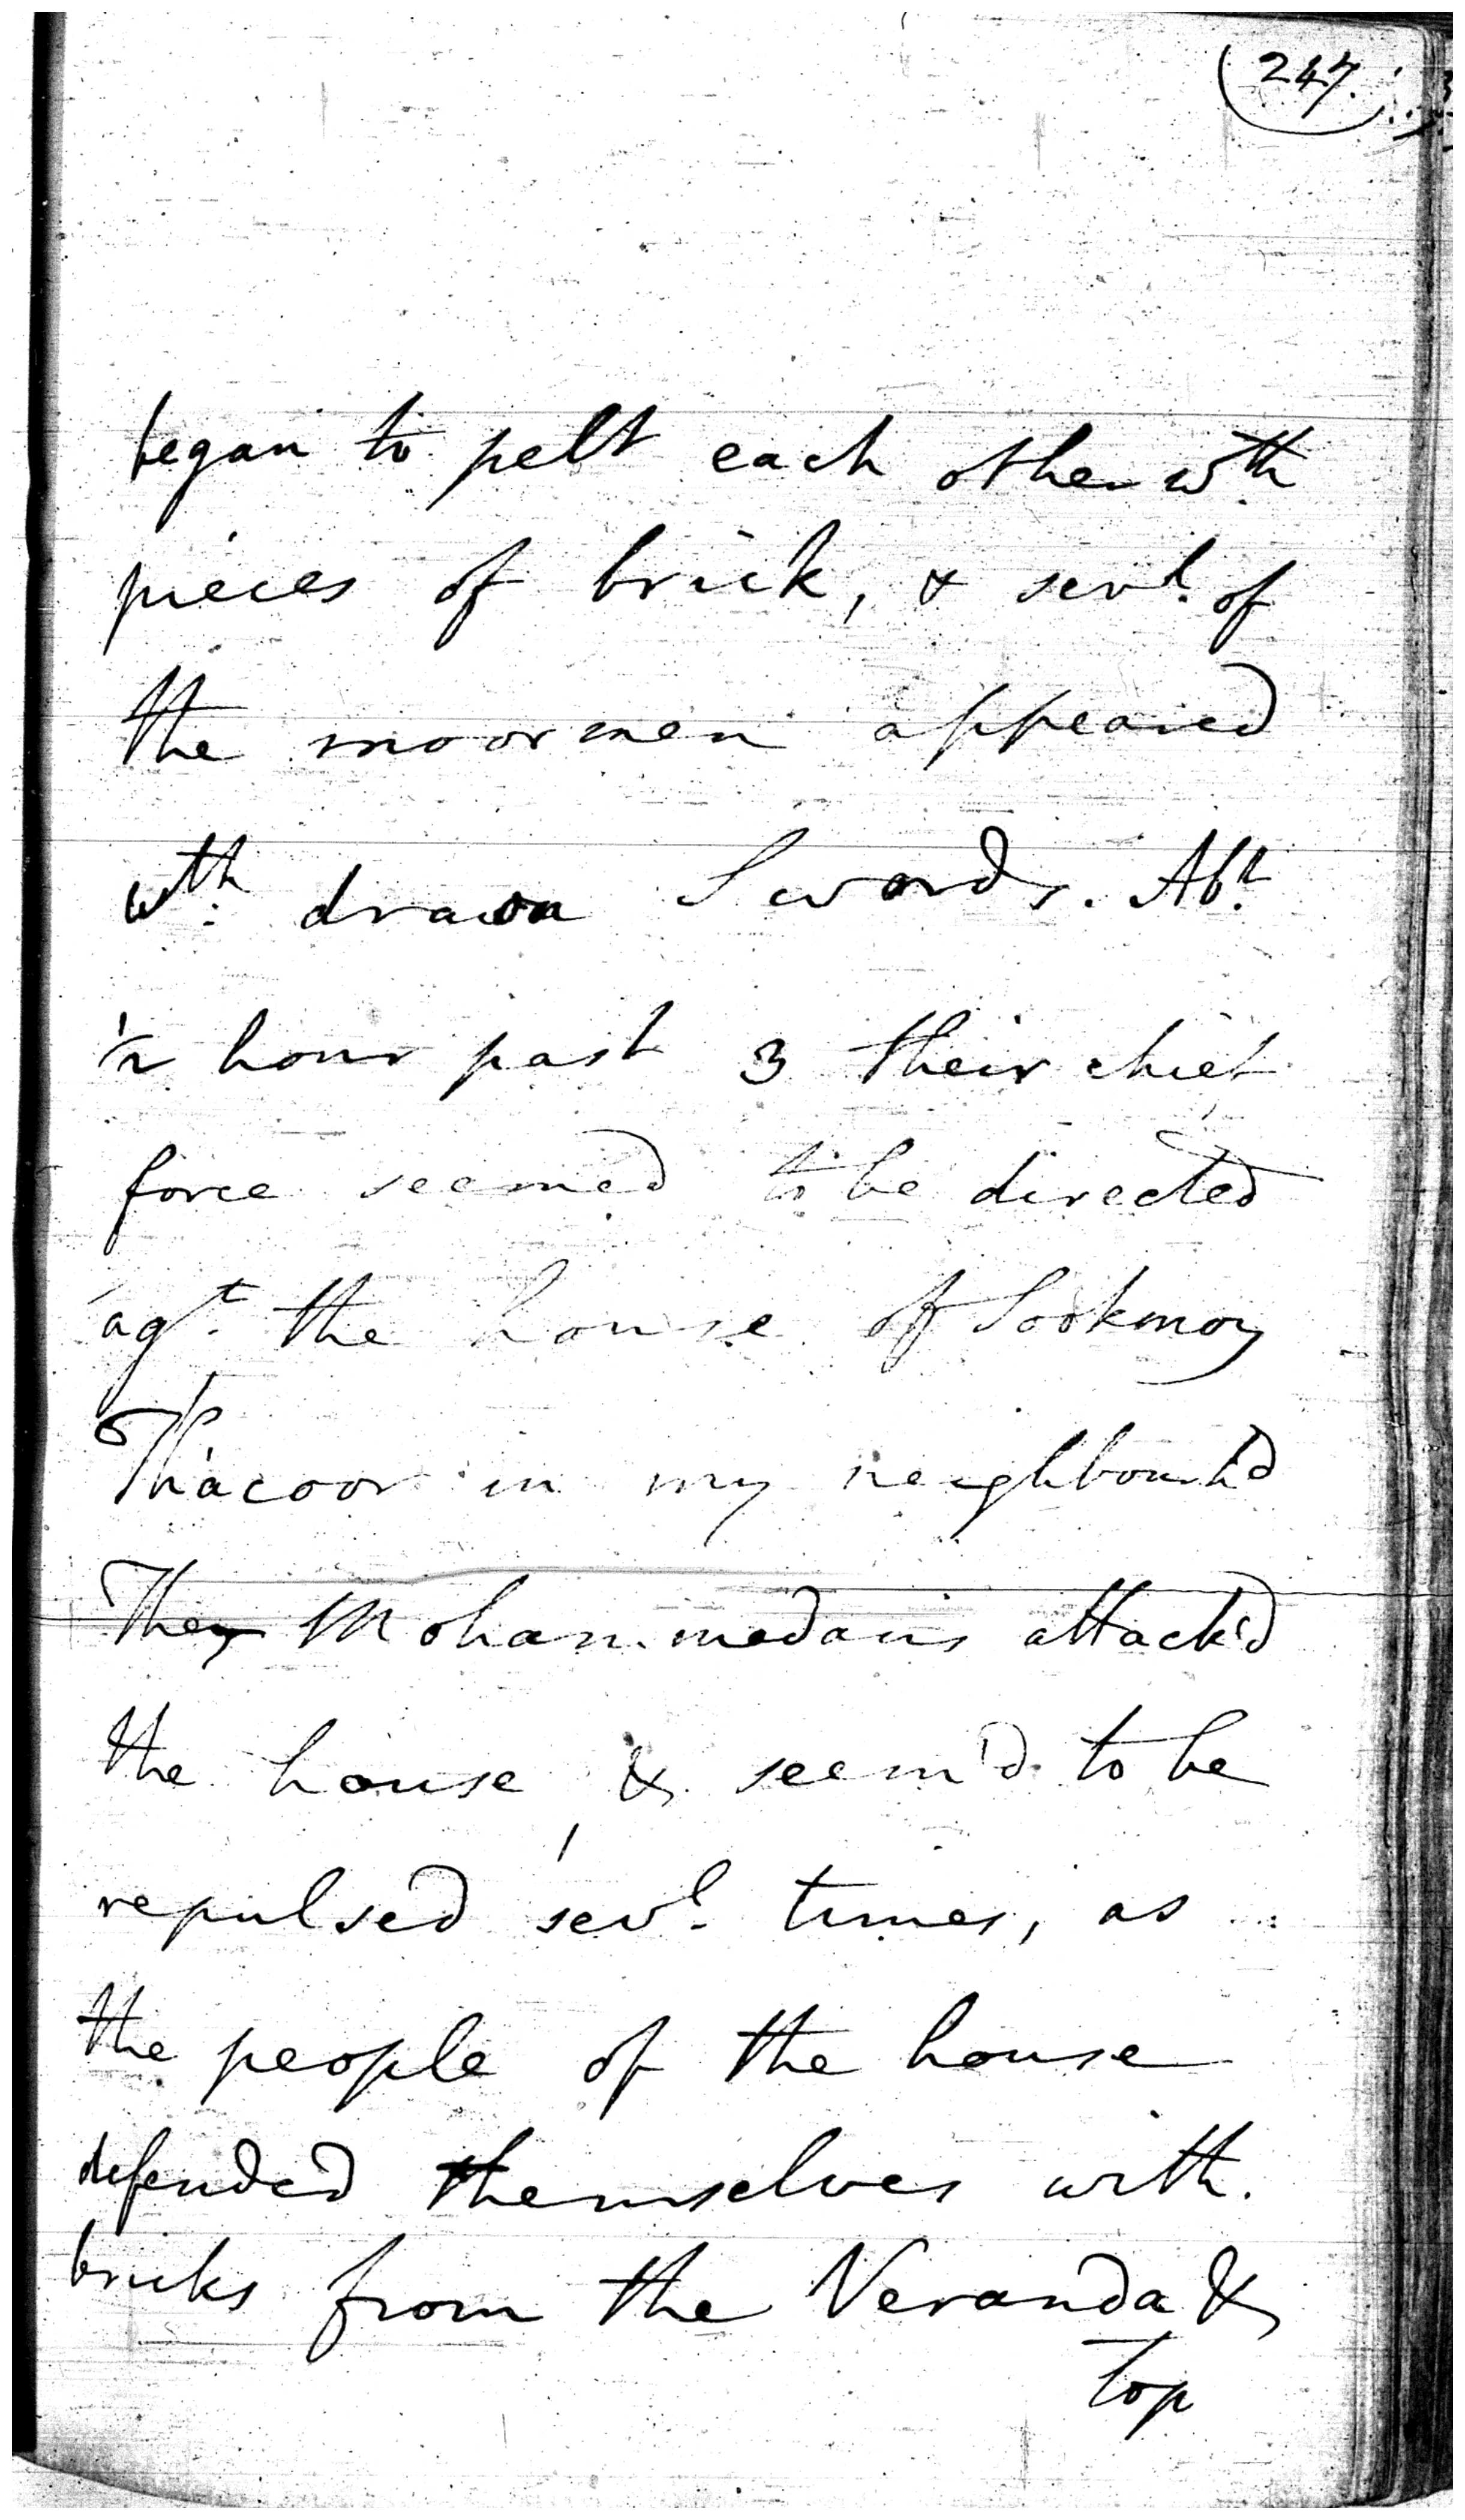 247.
began to pelt each other wth
pieces of brick, & sevl. of
the moormen appeared
wth. drawn Swords. Abt.
1/2 hour past 3 their chief
force seemed to be directed
agt. the house of Sookmoy
Thacoor in my neighbourhd
They Mohammedans attack'd
the house, & seem'd to be
repulsed sevl. times, as
the people of the house
defended themselves with.
bricks from the Veranda &
top